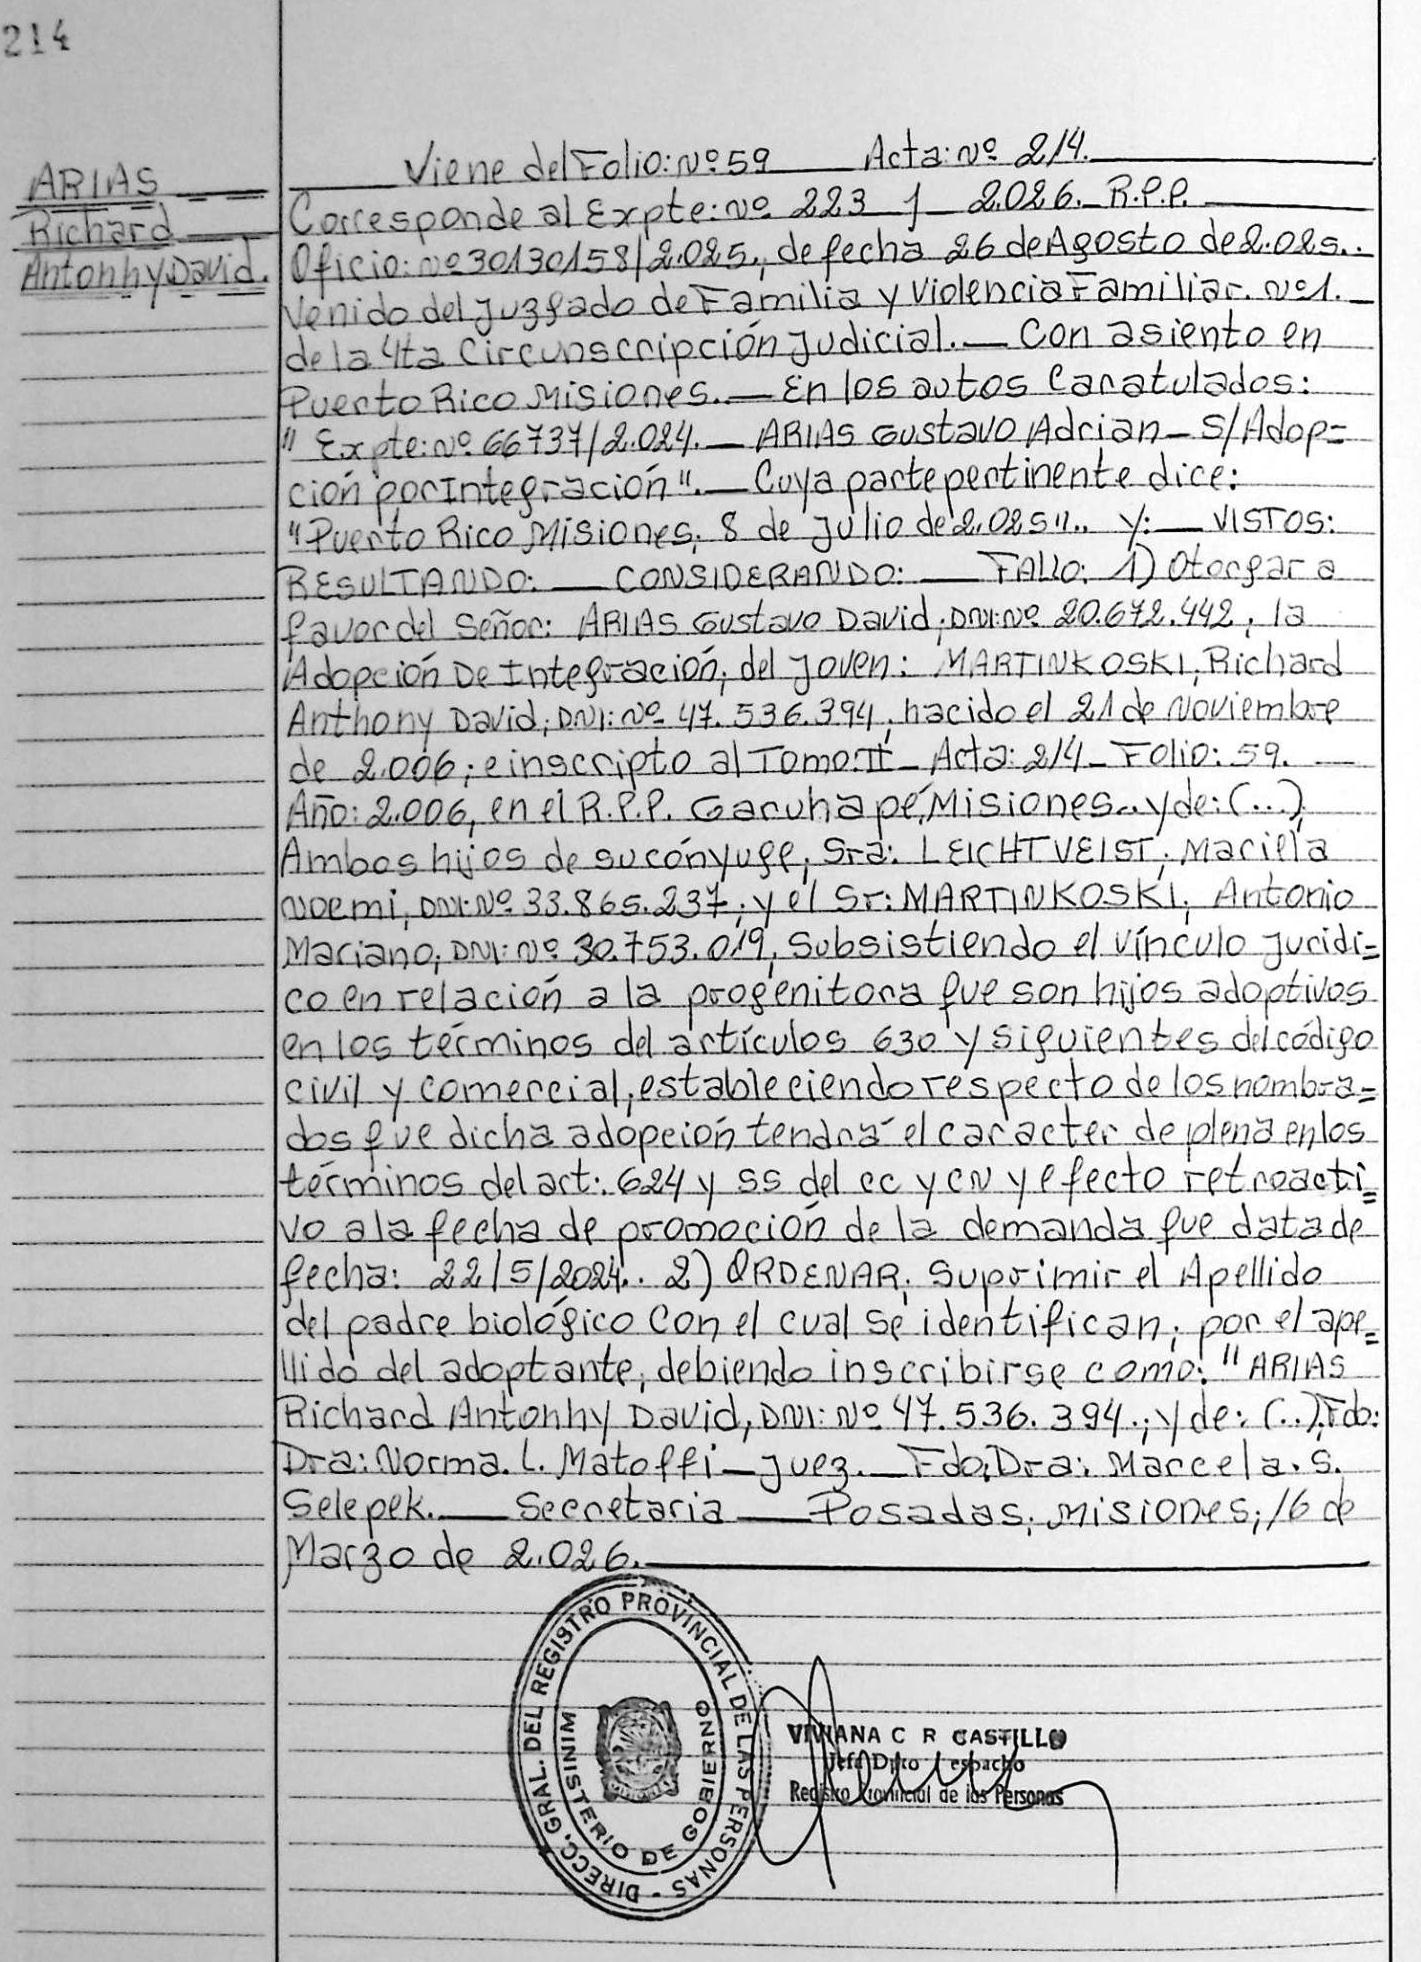 214
ARIAS
Richard
Antonhy David.
Viene del Folio: Nº 59 Acta: Nº 214.
Corresponde al Expte: Nº 223 / 2.026. R.P.P.
Oficio: Nº 30130158/2.025., de fecha 26 de Agosto de 2.025..
Venido del Juzgado de Familia y Violencia Familiar. Nº 1.
de la 4ta Circunscripción Judicial.— Con asiento en
Puerto Rico Misiones.— En los autos Caratulados:
" Expte: Nº 66737/2.024.— ARIAS Gustavo Adrian – S/Adop=
ción por Integración".— Cuya parte pertinente dice:
"Puerto Rico Misiones, 8 de Julio de 2.025".. Y:— VISTOS:
RESULTANDO:— CONSIDERANDO:— FALLO: 1) Otorgar a
favor del Señor: ARIAS Gustavo David; DNI: Nº 20.672.442, la
Adopción De Integración, del Joven: MARTINKOSKI, Richard
Anthony David; DNI: Nº 47.536.394, nacido el 21 de Noviembre
de 2.006; e inscripto al Tomo: II – Acta: 214 – Folio: 59.—
Año: 2.006, en el R.P.P. Garuhapé, Misiones.. y de: (...)
Ambos hijos de su cónyuge, Sra: LEICHTVEIST, Mariela
Noemi, DNI: Nº 33.865.237; y el Sr: MARTINKOSKI, Antonio
Mariano; DNI: Nº 30.753.019, Subsistiendo el vínculo jurídi=
co en relación a la progenitora que son hijos adoptivos
en los términos del artículos 630 y siguientes del código
civil y comercial, estableciendo respecto de los nombra=
dos que dicha adopción tendrá el caracter de plena en los
términos del art:. 624 y ss del cc y CN y efecto retroacti=
vo a la fecha de promoción de la demanda que data de
fecha: 22/5/2024.. 2) ORDENAR, Suprimir el Apellido
del padre biológico con el cual se identifican, por el ape=
llido del adoptante, debiendo inscribirse como: "ARIAS
Richard Antonhy David, DNI: Nº 47.536.394.; y de: (..). Fdo:
Dra: Norma. L. Matoffi – Juez.— Fdo: Dra: Marcela. S.
Selepek.— Secretaria — Posadas, Misiones, 16 de
Marzo de 2.026.
DIRECC. GRAL. DEL REGISTRO PROVINCIAL DE LAS PERSONAS -
MINISTERIO DE GOBIERNO
VIVIANA C R CASTILLO
Jefa Dpto espacho
Registro Provincial de las Personas